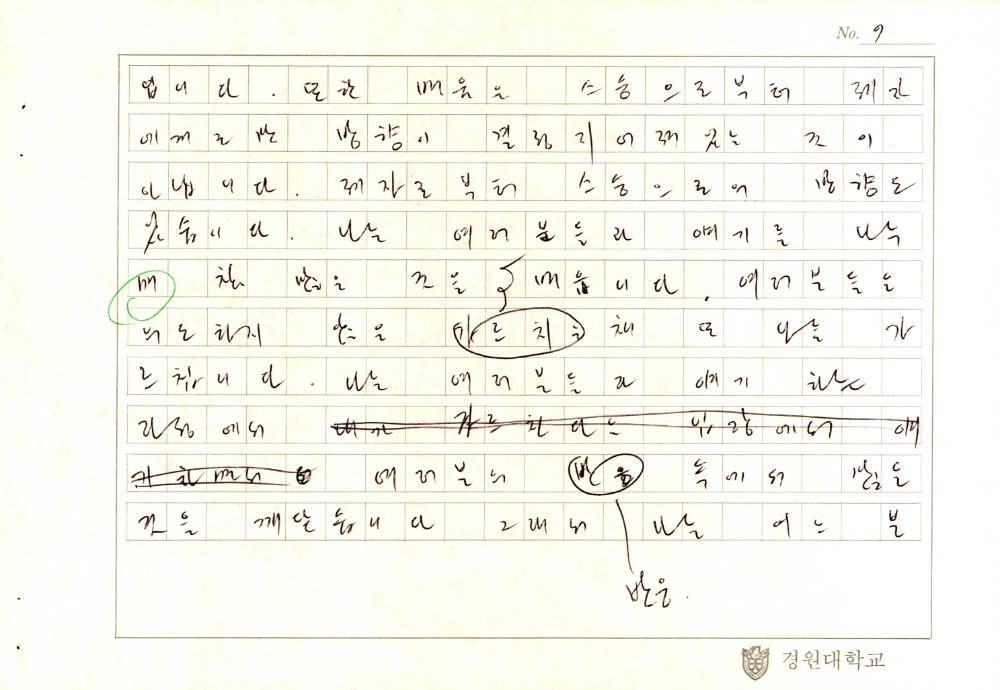 No. 9
입니다. 또한 배움은 스승으로부터 제자
에게로만 방향이 결정지어져 있는 것이
아닙니다. 제자로부터 스승으로의 방향도
있습니다. 나는 여러분들과 얘기를 나누
매 많은 것을 배웁니다. 여러분들은
의도하지 않은 가르치 채 또 나는 가
르칩니다. 나는 여러분들과 얘기 하는
과정에서 내가 가르친다는 입장에서 얘
기하면서 여러분의 반응 속에서 많은
것을 깨닫습니다 그래서 나는 어느 불
반응.
경원대학교